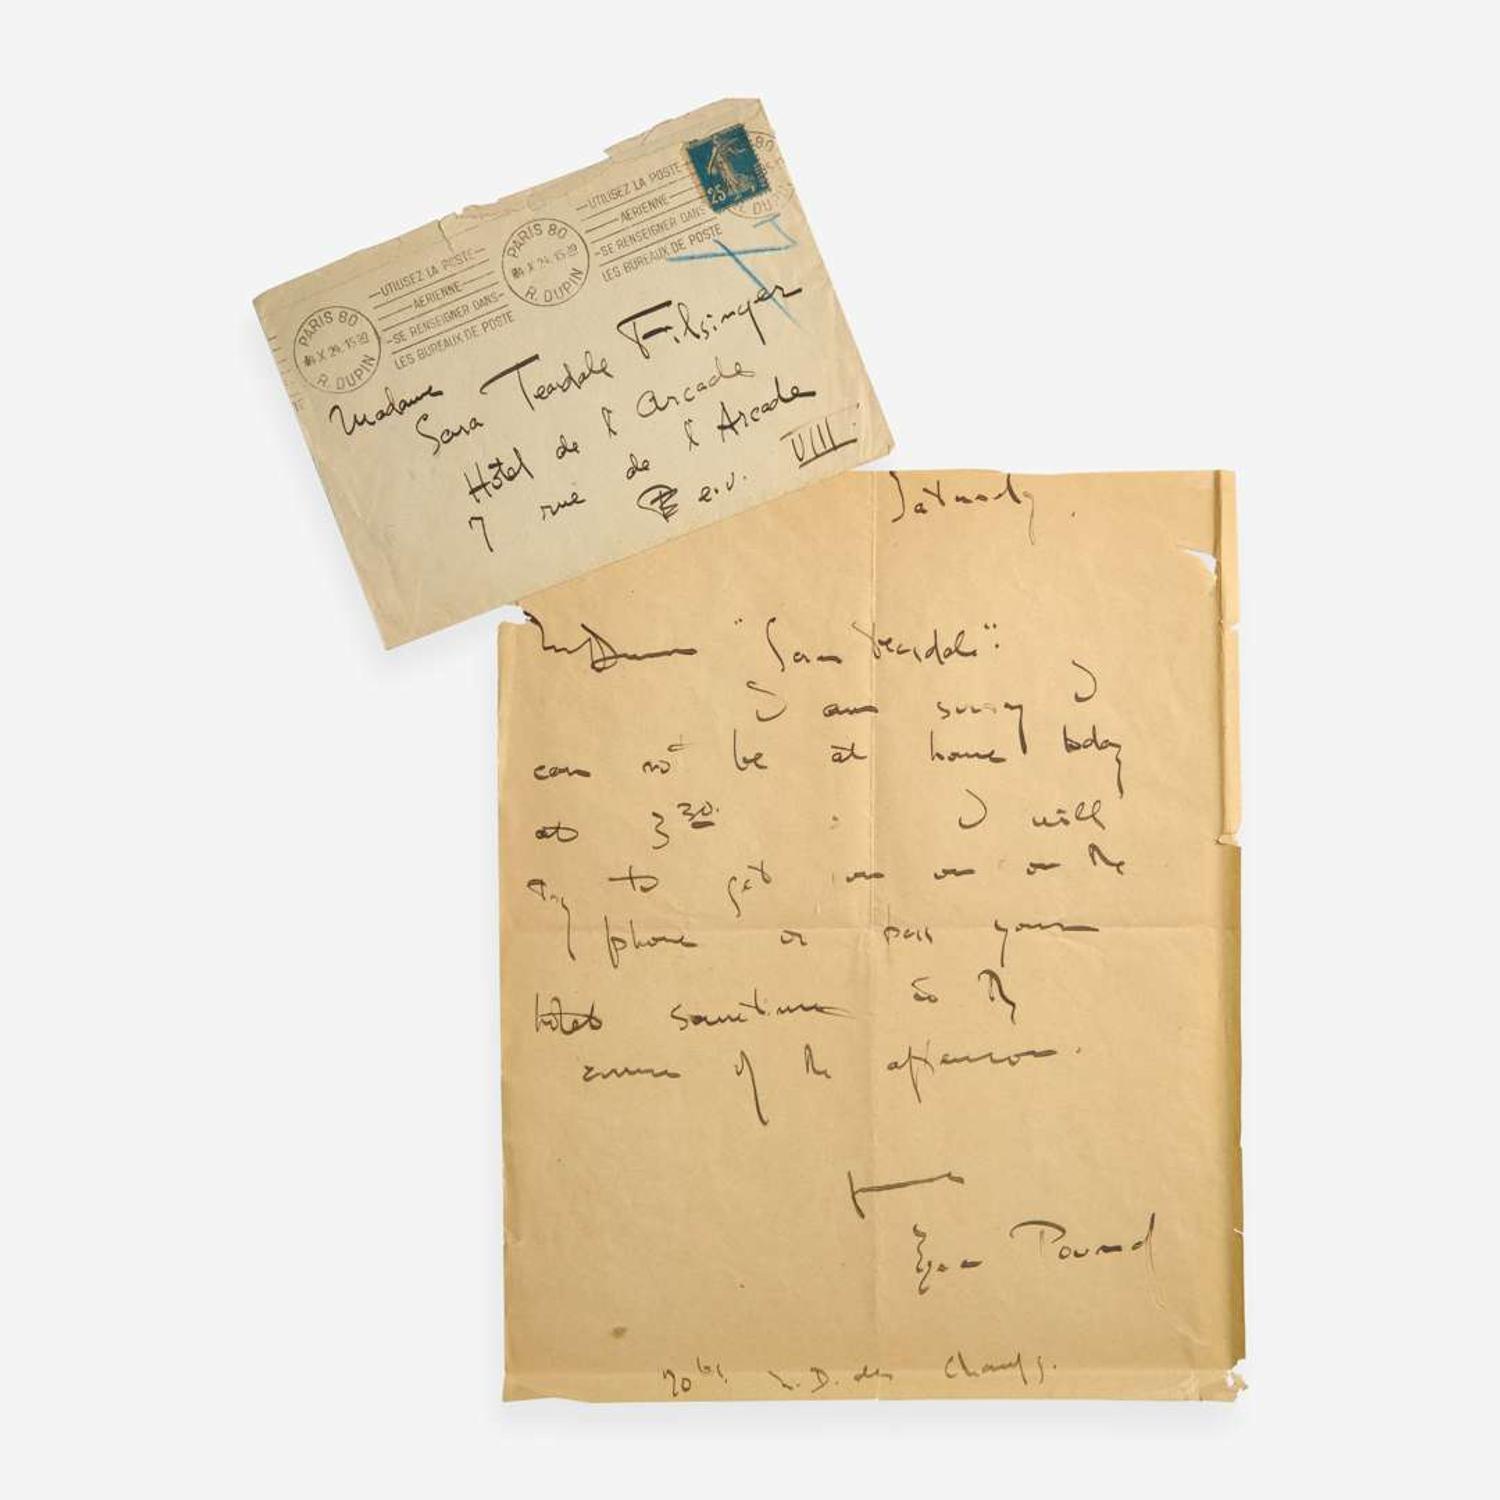 PARIS 80
R. DUPIN
UTILISEZ LA POSTE
AERIENNE
SE RENSEIGNER DANS
LES BUREAUX DE POSTE
PARIS 80
R. DUPIN
UTILISEZ LA POSTE
AERIENNE
SE RENSEIGNER DANS
LES BUREAUX DE POSTE
25
Madame
Sara Teasdale Filsinger
Hôtel de l'Arcade
7 rue de l'Arcade
e.v. VIII
Saturday.
"Sara Teasdale":
I am sorry I
can not be at home today
at 3 30. I will
try to get on the
phone or pass your
hotel sometime in the
course of the afternoon.
Ezra Pound
70 bis. N. D. des Champs.